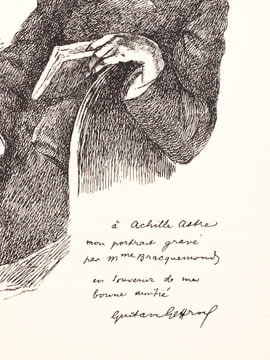 à Achille Astre
mon portrait gravé
par Mme Bracquemond
en souvenir de ma
bonne amitié
Gustave Geffroy